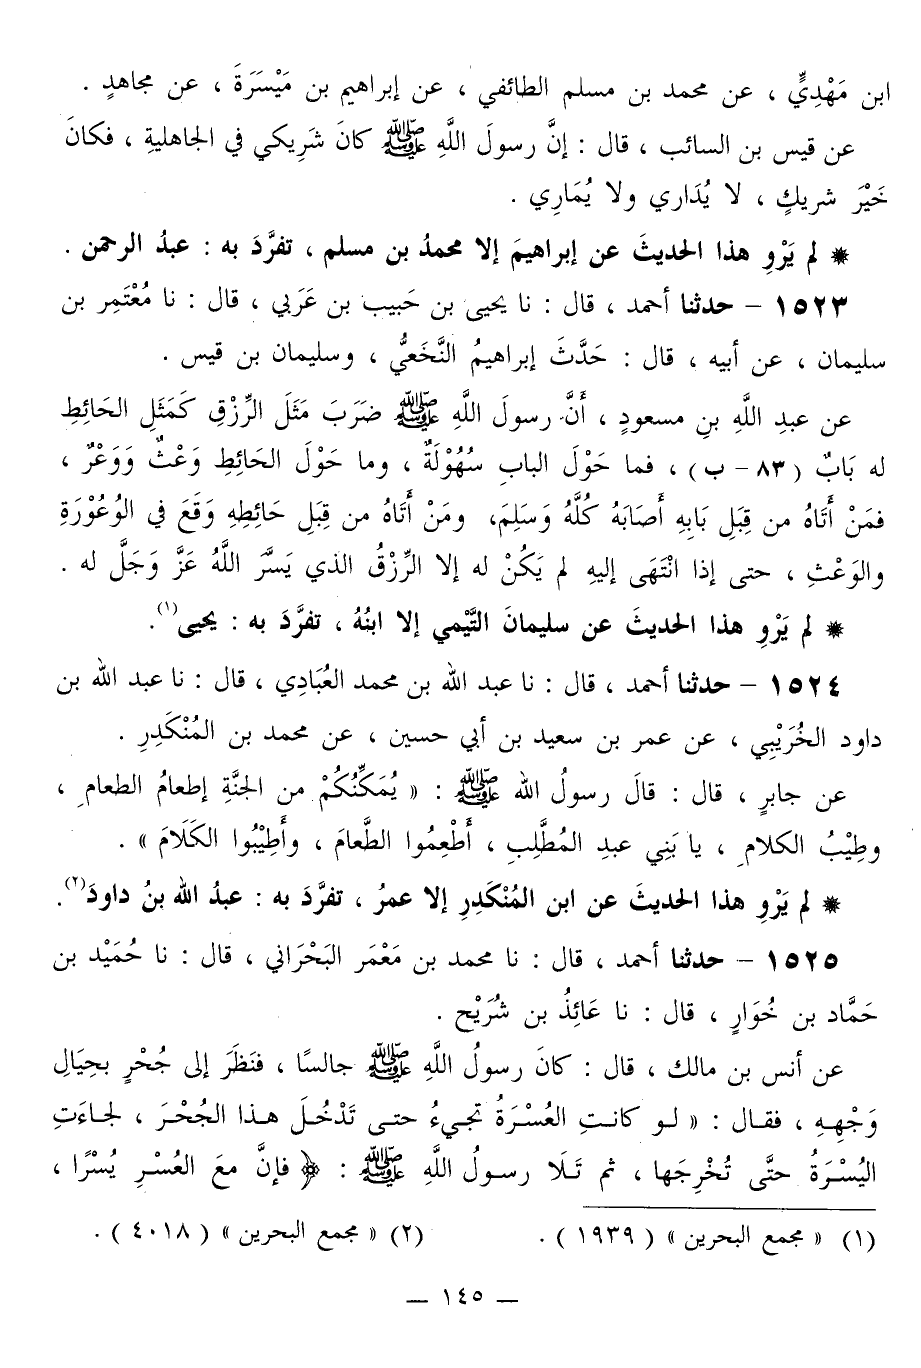 ابن مَهْدِيٍّ ، عن محمد بن مسلم الطائفي ، عن إبراهيم بن مَيْسَرَةَ ، عن مجاهدٍ .
عن قيس بن السائب ، قال : إنَّ رسولَ اللَّهِ ﷺ كانَ شَرِيكي في الجاهليةِ ، فكانَ
خَيْرَ شريكٍ ، لا يُدَاري ولا يُمَارِي .
* لم يَرْوِ هذا الحديثَ عن إبراهيمَ إلا محمدُ بن مسلم ، تفرَّدَ به : عبدُ الرحمن .
١٥٢٣ – حدثنا أحمد ، قال : نا يحيى بن حَبيب بن عَرَبي ، قال : نا مُعْتَمِر بن
سليمان ، عن أبيه ، قال : حَدَّثَ إبراهيمُ النَّخَعيُّ ، وسليمان بن قيس .
عن عبدِ اللَّهِ بنِ مسعودٍ ، أَنَّ رسولَ اللَّهِ ﷺ ضَرَبَ مَثَلَ الرِّزْقِ كَمَثَلِ الحَائِطِ
له بَابٌ ( ٨٣ – ب ) ، فما حَوْلَ البابِ سُهُولَةٌ ، وما حَوْلَ الحَائِطِ وَعْثٌ وَوَعْرٌ ،
فمَنْ أَتَاهُ من قِبَلِ بَابِهِ أصَابَهُ كُلَّهُ وَسَلِمَ، ومَنْ أتَاهُ من قِبَلِ حَائِطِهِ وَقَعَ في الوُعُوْرَةِ
والوَعْثِ ، حتى إذا انْتَهَى إليهِ لم يَكُنْ له إلا الرِّزْقُ الذي يَسَّرَ اللَّهُ عَزَّ وَجَلَّ له .
* لم يَرْوِ هذا الحديثَ عن سليمانَ التَّيْمي إلا ابنُهُ ، تفرَّدَ به : يحيى(١).
١٥٢٤ – حدثنا أحمد ، قال : نا عبد الله بن محمد العُبَادِي ، قال : نا عبد الله بن
داود الخُرَيْبِي ، عن عمر بن سعيد بن أبي حسين ، عن محمد بن المُنْكَدِرِ .
عن جابرٍ ، قال : قالَ رسولُ الله ﷺ : « يُمَكِّنُكُمْ من الجنَّةِ إطعامُ الطعامِ ،
وطِيْبُ الكلامِ ، يا بَنِي عبدِ المُطَّلِبِ ، أَطْعِمُوا الطَّعامَ ، وأَطِيْبُوا الكَلَامَ » .
* لم يَرْوِ هذا الحديثَ عن ابن المُنْكَدِرِ إلا عمرُ ، تفرَّدَ به : عبدُ الله بنُ داودَ(٢).
١٥٢٥ – حدثنا أحمد ، قال : نا محمد بن مَعْمَر البَحْرَاني ، قال : نا حُمَيْد بن
حَمَّاد بن خُوَارٍ ، قال : نا عَائِذُ بن شُرَيْح .
عن أنس بن مالك ، قال : كانَ رسولُ اللَّهِ ﷺ جالسًا ، فنَظَرَ إلى جُحْرٍ بحِيَالِ
وَجْهِهِ ، فقال : « لو كانتِ العُسْرَةُ تجيءُ حتى تَدْخُلَ هذا الجُحْرَ ، لجاءَتِ
اليُسْرَةُ حتَّى تُخْرِجَها ، ثم تَلَا رسولُ اللَّهِ ﷺ : ﴿ فإنَّ معَ العُسْرِ يُسْرًا ،
(١) « مجمع البحرين » ( ١٩٣٩ ) . (٢) « مجمع البحرين » ( ٤٠١٨ ) .
— ١٤٥ —